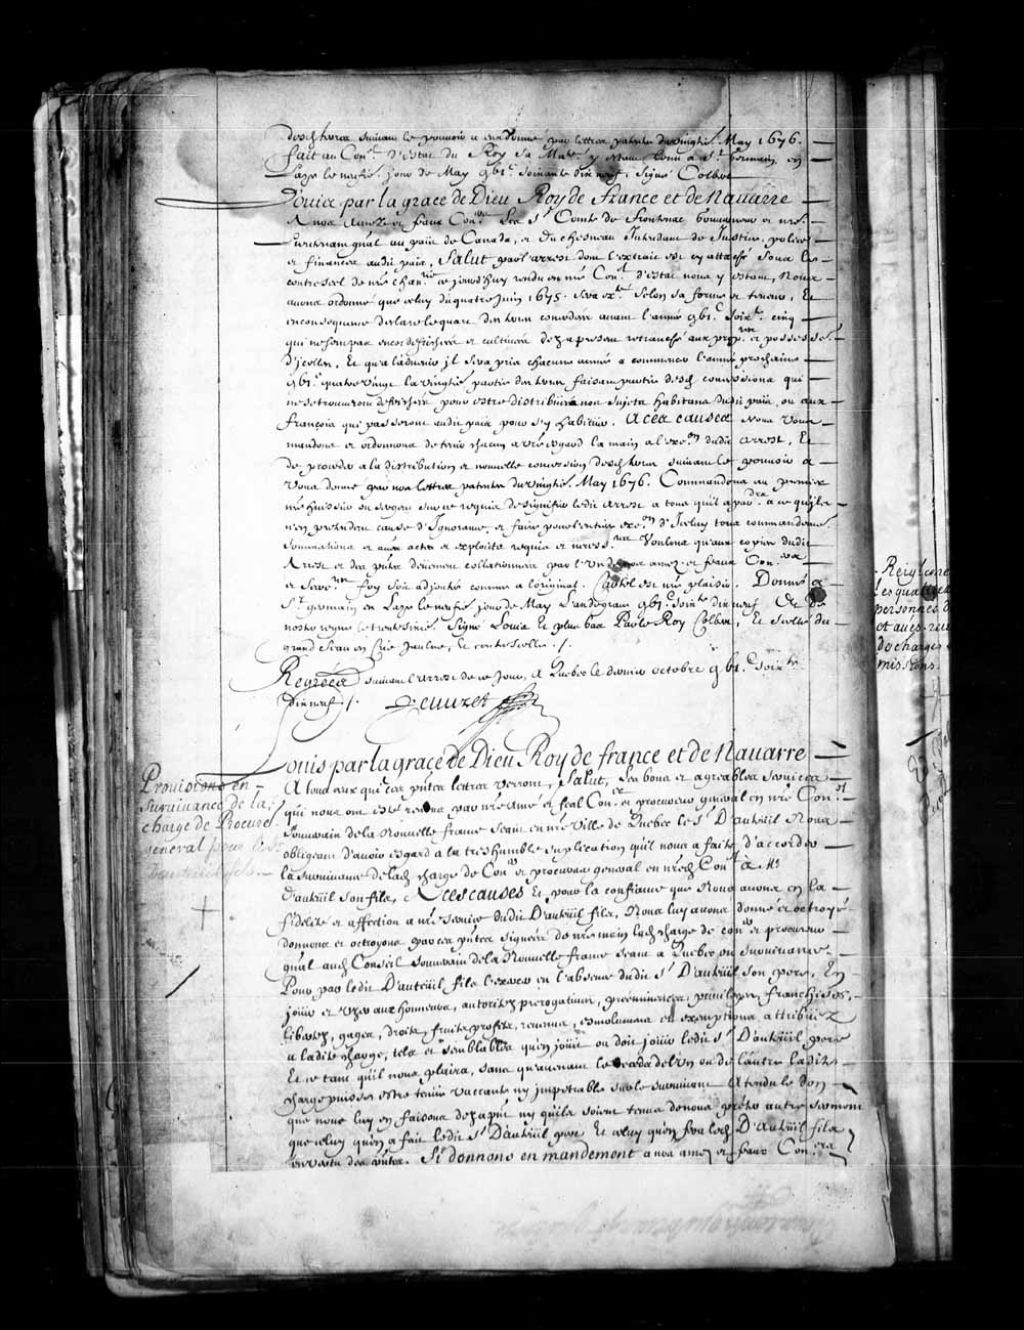 desd. terres suivant le pouvoir a eux donné par lettres patentes du vingtie. May 1676.
fait au Con.el d'estat du Roy Sa Ma.té y estant tenu a S.t Germain en
Laye le neufie. jour de May gbi.c soixante dix neuf, signé Colbert
Louis par la grace de Dieu Roy de france et de Nauarre
A nos Amez et feaux Con.ers Les S.r Comte de Frontenac Gouuerneur et nre.
Lieutenant gn'al au païs de Canada, et Duchesneau Intendant de Justice, police
et finances audit païs, Salut par l'arrest dont l'extrait est cy attaché soub le
contreseel de nre chan.rie ce jourd'huy rendu en nre Con.el d'estat nous y estant, Nous
auons ordonné que celuy du quatre Juin 1675. sera ex.té selon sa forme et teneur, Et
in consequence declaré le quart des terres concedées auant l'année gbi.c soix.te cinq
qui ne sont pas encor defrichées et cultiuées dez a present retranché aux prop.res et possess.rs
d'icelles, Et qu'a l'aduenir il sera pris chacune année a commencer l'année prochaine
gbi.c quatre vingt la vingtie. partie des terres faisant partie desd. concessions qui
ne se trouueront defrichées pour estre distribuées a nos sujets habitans dudit païs, ou aux
françois qui passeront audit païs pour s'y habituer. A ces causes Nous vous
mandons et ordonnons de tenir chacun a vre esgard la main a l'exe.on dudit arrest, Et
de proceder a la distribution et nouuelle concession desd. terres suiuant le pouuoir a
vous donné par nos lettres patentes du vingtie. May 1676. Commandons au premier
nre huissier ou sergent sur ce requis de signifier ledit arrest a tous qu'il apar.dra a ce qu'ils
n'en pretendent cause d'Ignorance, et faire pour l'entiere exe.on d'Iceluy tous commandemens
sommations et aues actes et exploits requis et necess.res Voulons qu'aux copies dudit
Arrest et des pntes deuement collationnées par l'un de nos amez et feaux Con.ers
et Secre.res foy soit adjoutée comme a l'original. Car tel est nre plaisir. Donné a
S.t germain en Laye le neufie. jour de May L'an de grace gbi.c soix.te dix neuf, Et de
nostre regne le trentesixie. Signé Louis Et plus bas Par le Roy Colbert, Et scellé du
grand sceau en Cire jaulne, et contrescellé ./.
Regrées suiuant l'arrest de ce jour, a Quebec le dernier octobre gbi.c soix.te
dix neuf ./. Peuuret
Louis par la grace de Dieu Roy de france et de Nauarre
A tous ceux qui ces pntes lettres verront, Salut, Les bons et agreables seruices
qui nous ont esté rendus par nre amé et feal Con.er et procureur general en nre Con.el
Souuerain de la Nouuelle france seant en nre ville de Quebec le S.r D'auteüil Nous
obligeant d'auoir esgard a la tres humble suplication qu'il nous a faite d'accorder
la suruiuance de lad. charge de Con.er et procureur general en nred. Con.el à M.e
D'auteüil son fils, A ces causes Et, pour la confiance que Nous auons en la
fidelité et affection a nre seruice dudit D'auteüil fils, Nous luy auons donné et octroyé
donnons et octroyons par ces pntes signées de nre main lad. charge de con.er et procureur
gn'al aud. Conseil Souuerain de la Nouuelle france seant a Quebec en suruiuance
Pour par ledit D'auteüil fils l'exercer en l'absence dudit S.r D'auteüil son pere, En
joüir et vser aux honneurs, autoritez, prerogatiues, preéminences, priuileges, franchises,
libertez, gages, droits, fruits profits, reuenus, esmolumens et exemptions attribuez
a ladite charge, tels et semblables qu'en joüit ou doit joüir ledit S.r D'auteüil pere
Et ce tant qu'il nous plaira, sans qu'auenant le deceds de l'un ou de l'autre ladite
charge puisse estre tenüe vaccante ny impetrable sur le suruiuant Attendu le don
que nous luy en faisons dez a pnt ny qu'ils soient tenus de nous prester autre serment
que celuy qu'en a fait ledit S.r D'auteüil pere Et celuy qu'en fera led. D'auteüil fils
en vertu des pntes. Si donnons en mandement a nos amez et feaux Con.ers
Prouisions en
suruiuance de la
charge de Procur.
general pour le S.r
Dauteüil fils.
Reiglem
Les qua
personnes d
et au
de charges
missions.